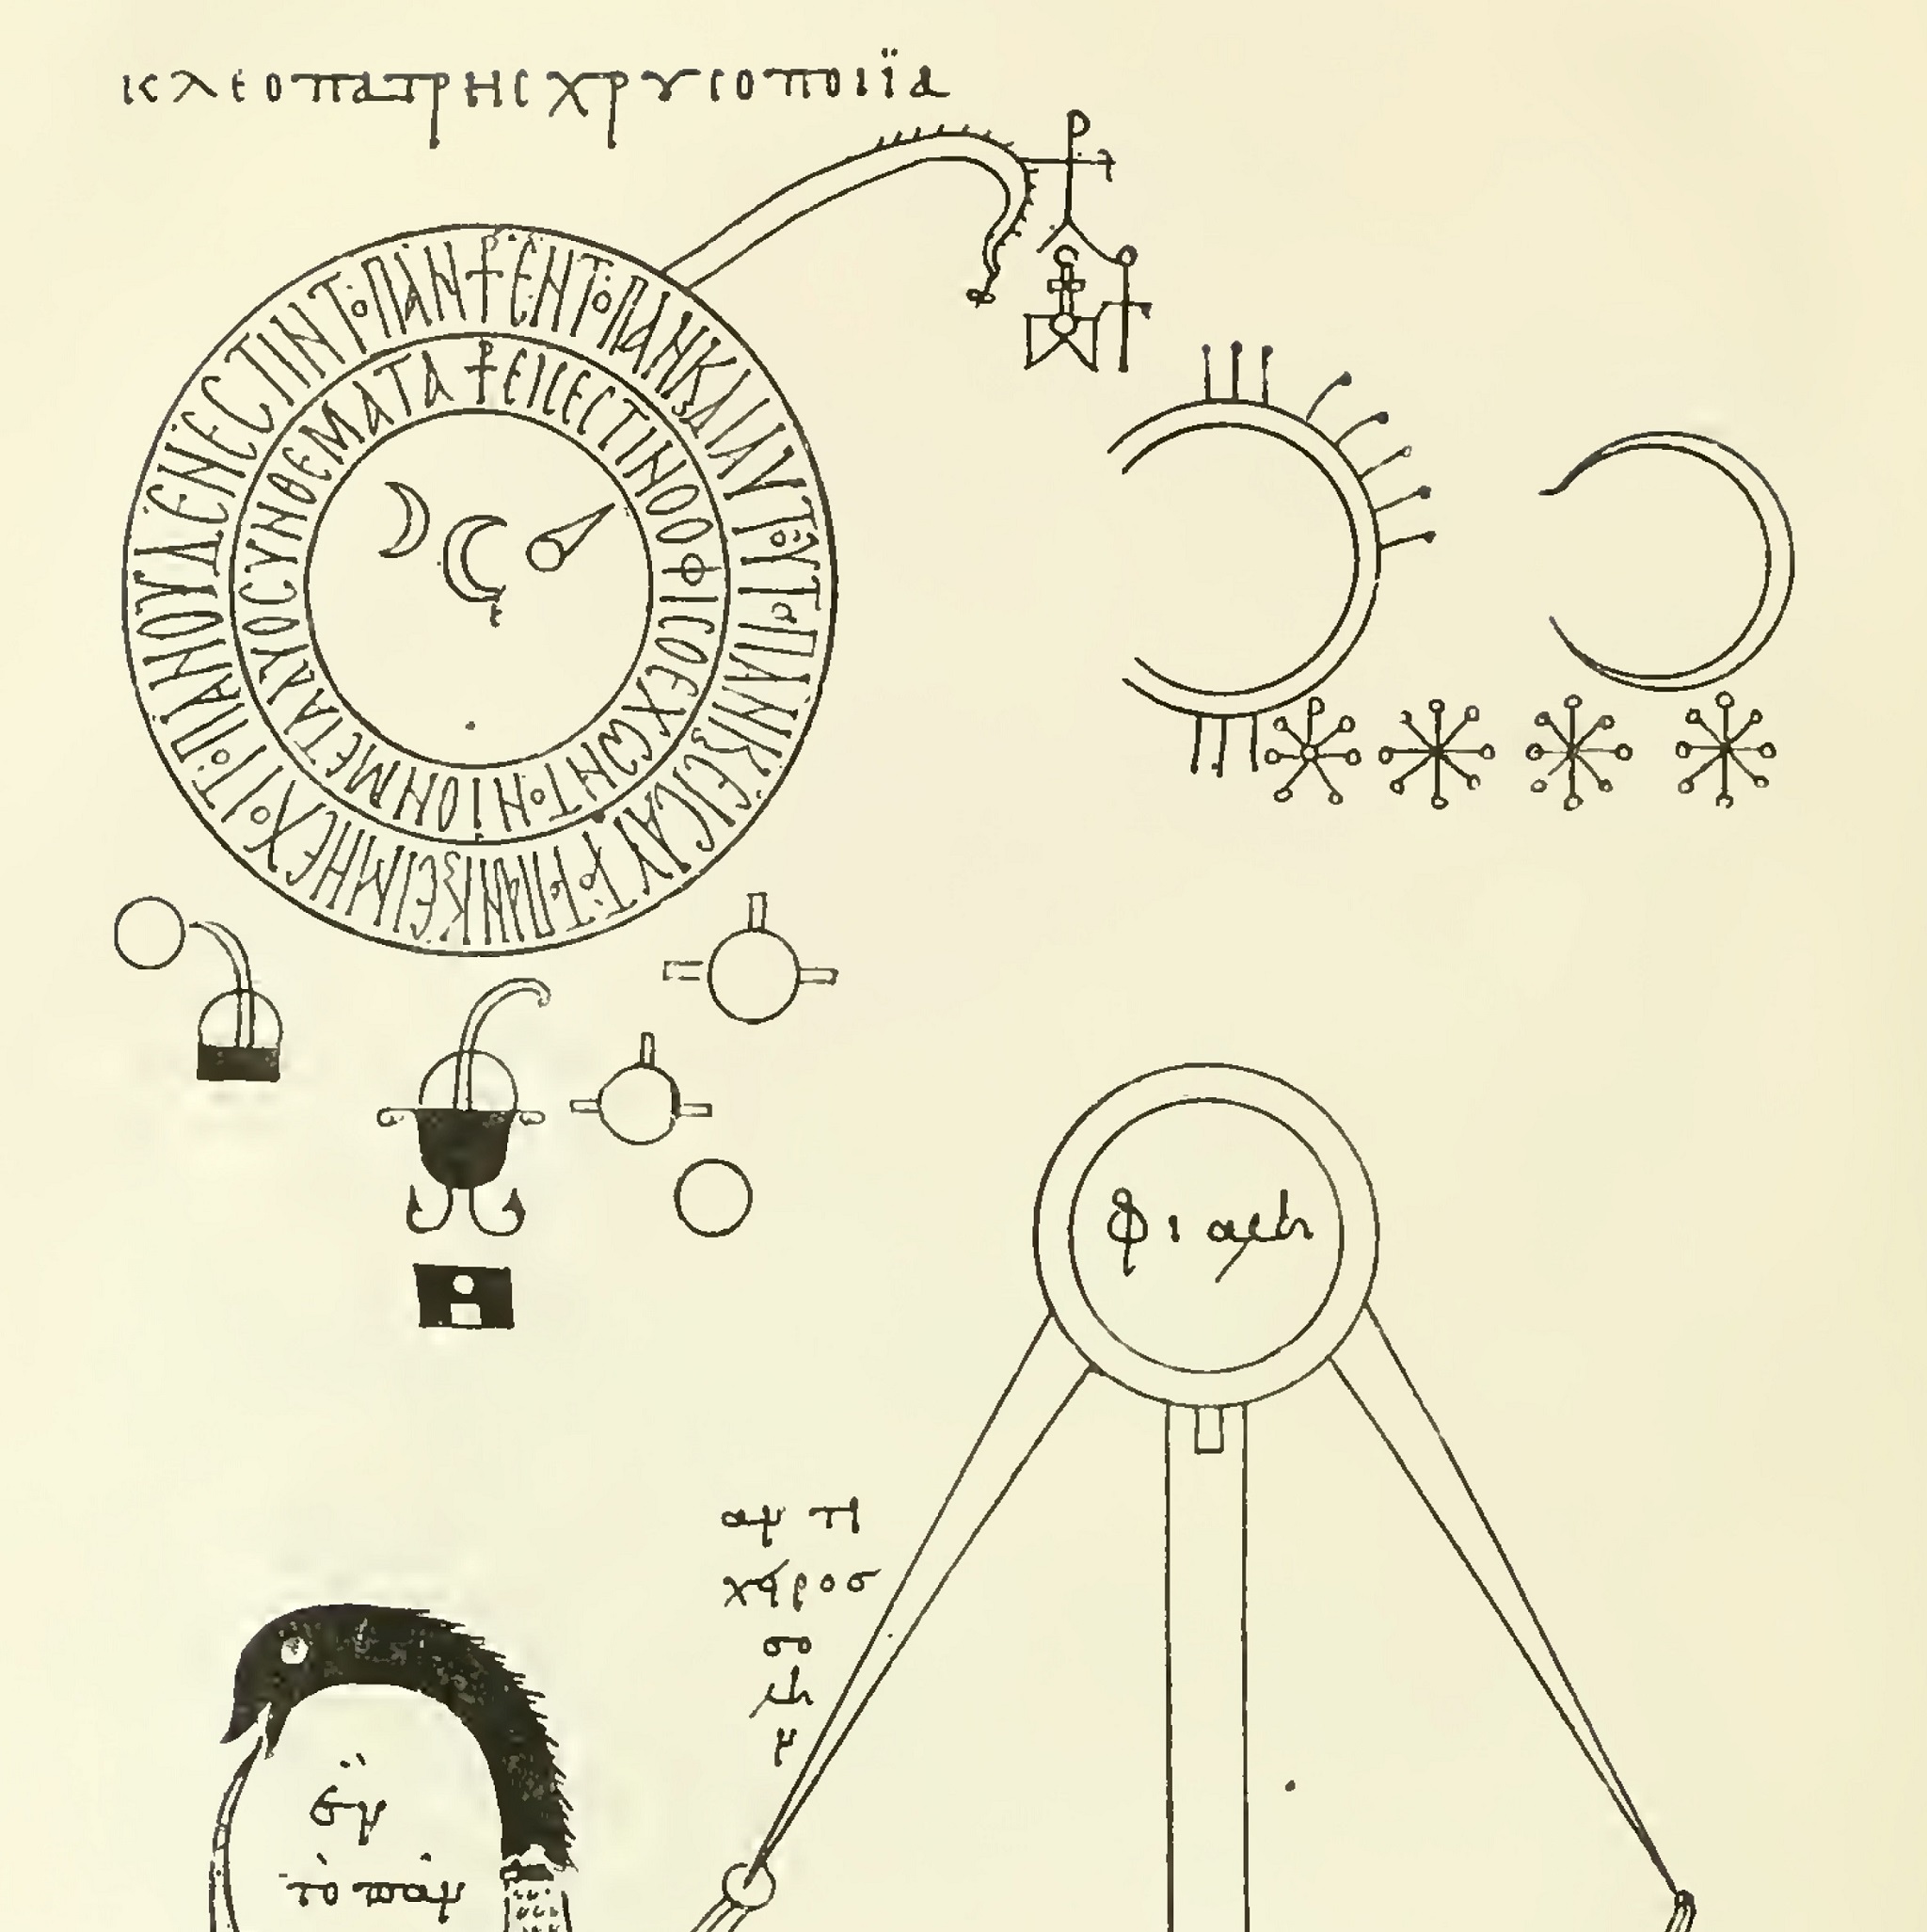 κλεοπατρης χρυσοποιϊα
ΕΝ ΤΟ ΠΑΝ Κϛ ΔΙ ΑΥΤΟΥ ΤΟ ΠΑΝ Κϛ ΕΙϹ ΑΥΤΟ ΤΟ ΠΑΝ Κϛ ΕΙ ΜΗ ΕΧΙ ΤΟ ΠΑΝ ΟΥΔΕΝ ΕϹΤΙΝ ΤΟ ΠΑΝ
ΕΙϹ ΕϹΤΙΝ Ο ΟΦΙϹ Ο ΕΧΩΝ ΤΟΝ ΙΟΝ ΜΕΤΑ ΔΥΟ ϹΥΝΘΕΜΑΤΑ
φιαλη
αν τι
χαρος
σω
λη
ν
ἓν
τὸ παν